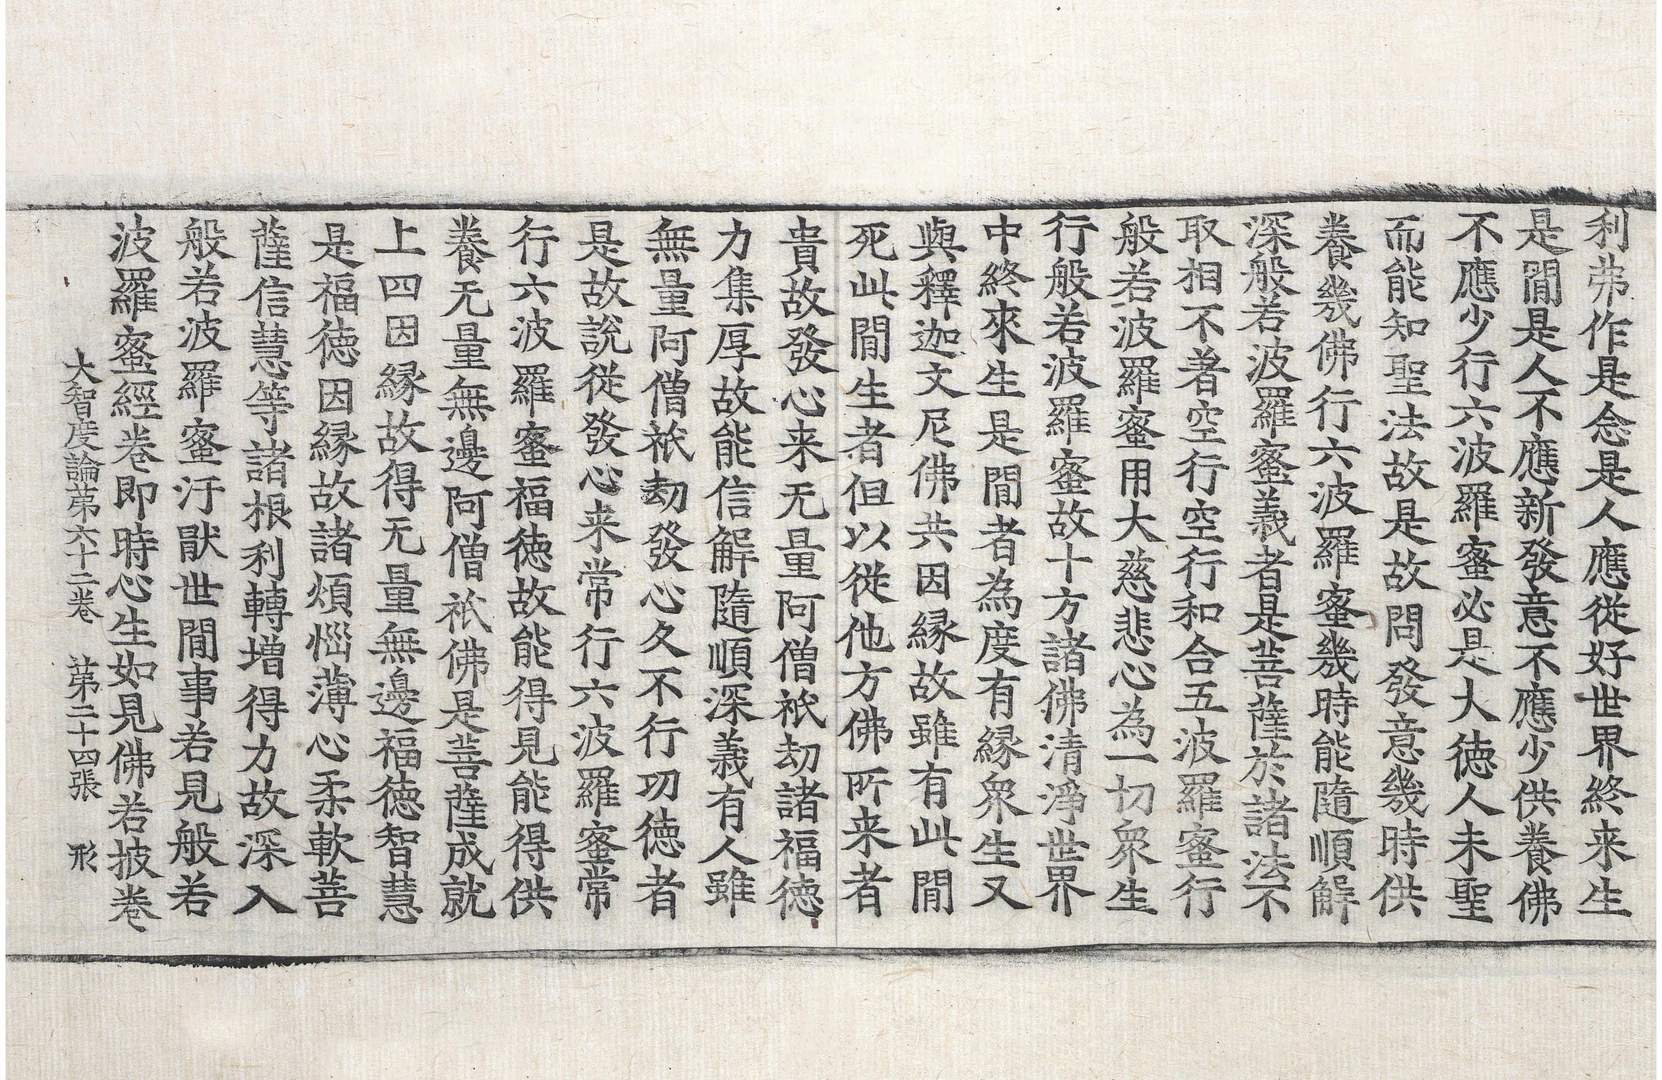 利弗作是念是人應從好世界終来生
是閒是人不應新發意不應少供養佛
不應少行六波羅蜜必是大德人未聖
而能知聖法故是故問發意幾時供
養幾佛行六波羅蜜幾時能隨順解
深般若波羅蜜義者是菩薩於諸法不
取相不著空行空行和合五波羅蜜行
般若波羅蜜用大慈悲心為一切衆生
行般若波羅蜜故十方諸佛清淨世界
中終來生是閒者為度有縁衆生又
與釋迦文尼佛共因縁故雖有此閒
死此閒生者但以從他方佛所来者
貴故發心来无量阿僧祇劫諸福德
力集厚故能信解隨順深義有人雖
無量阿僧祇劫發心久不行功德者
是故說從發心来常行六波羅蜜常
行六波羅蜜福德故能得見能得供
養无量無邊阿僧祇佛是菩薩成就
上四因縁故得无量無邊福德智慧
是福德因縁故諸煩惱薄心柔軟菩
薩信慧等諸根利轉增得力故深入
般若波羅蜜汙猒世閒事若見般若
波羅蜜經卷即時心生如見佛若披卷
大智度論第六十二卷 第二十四張 形